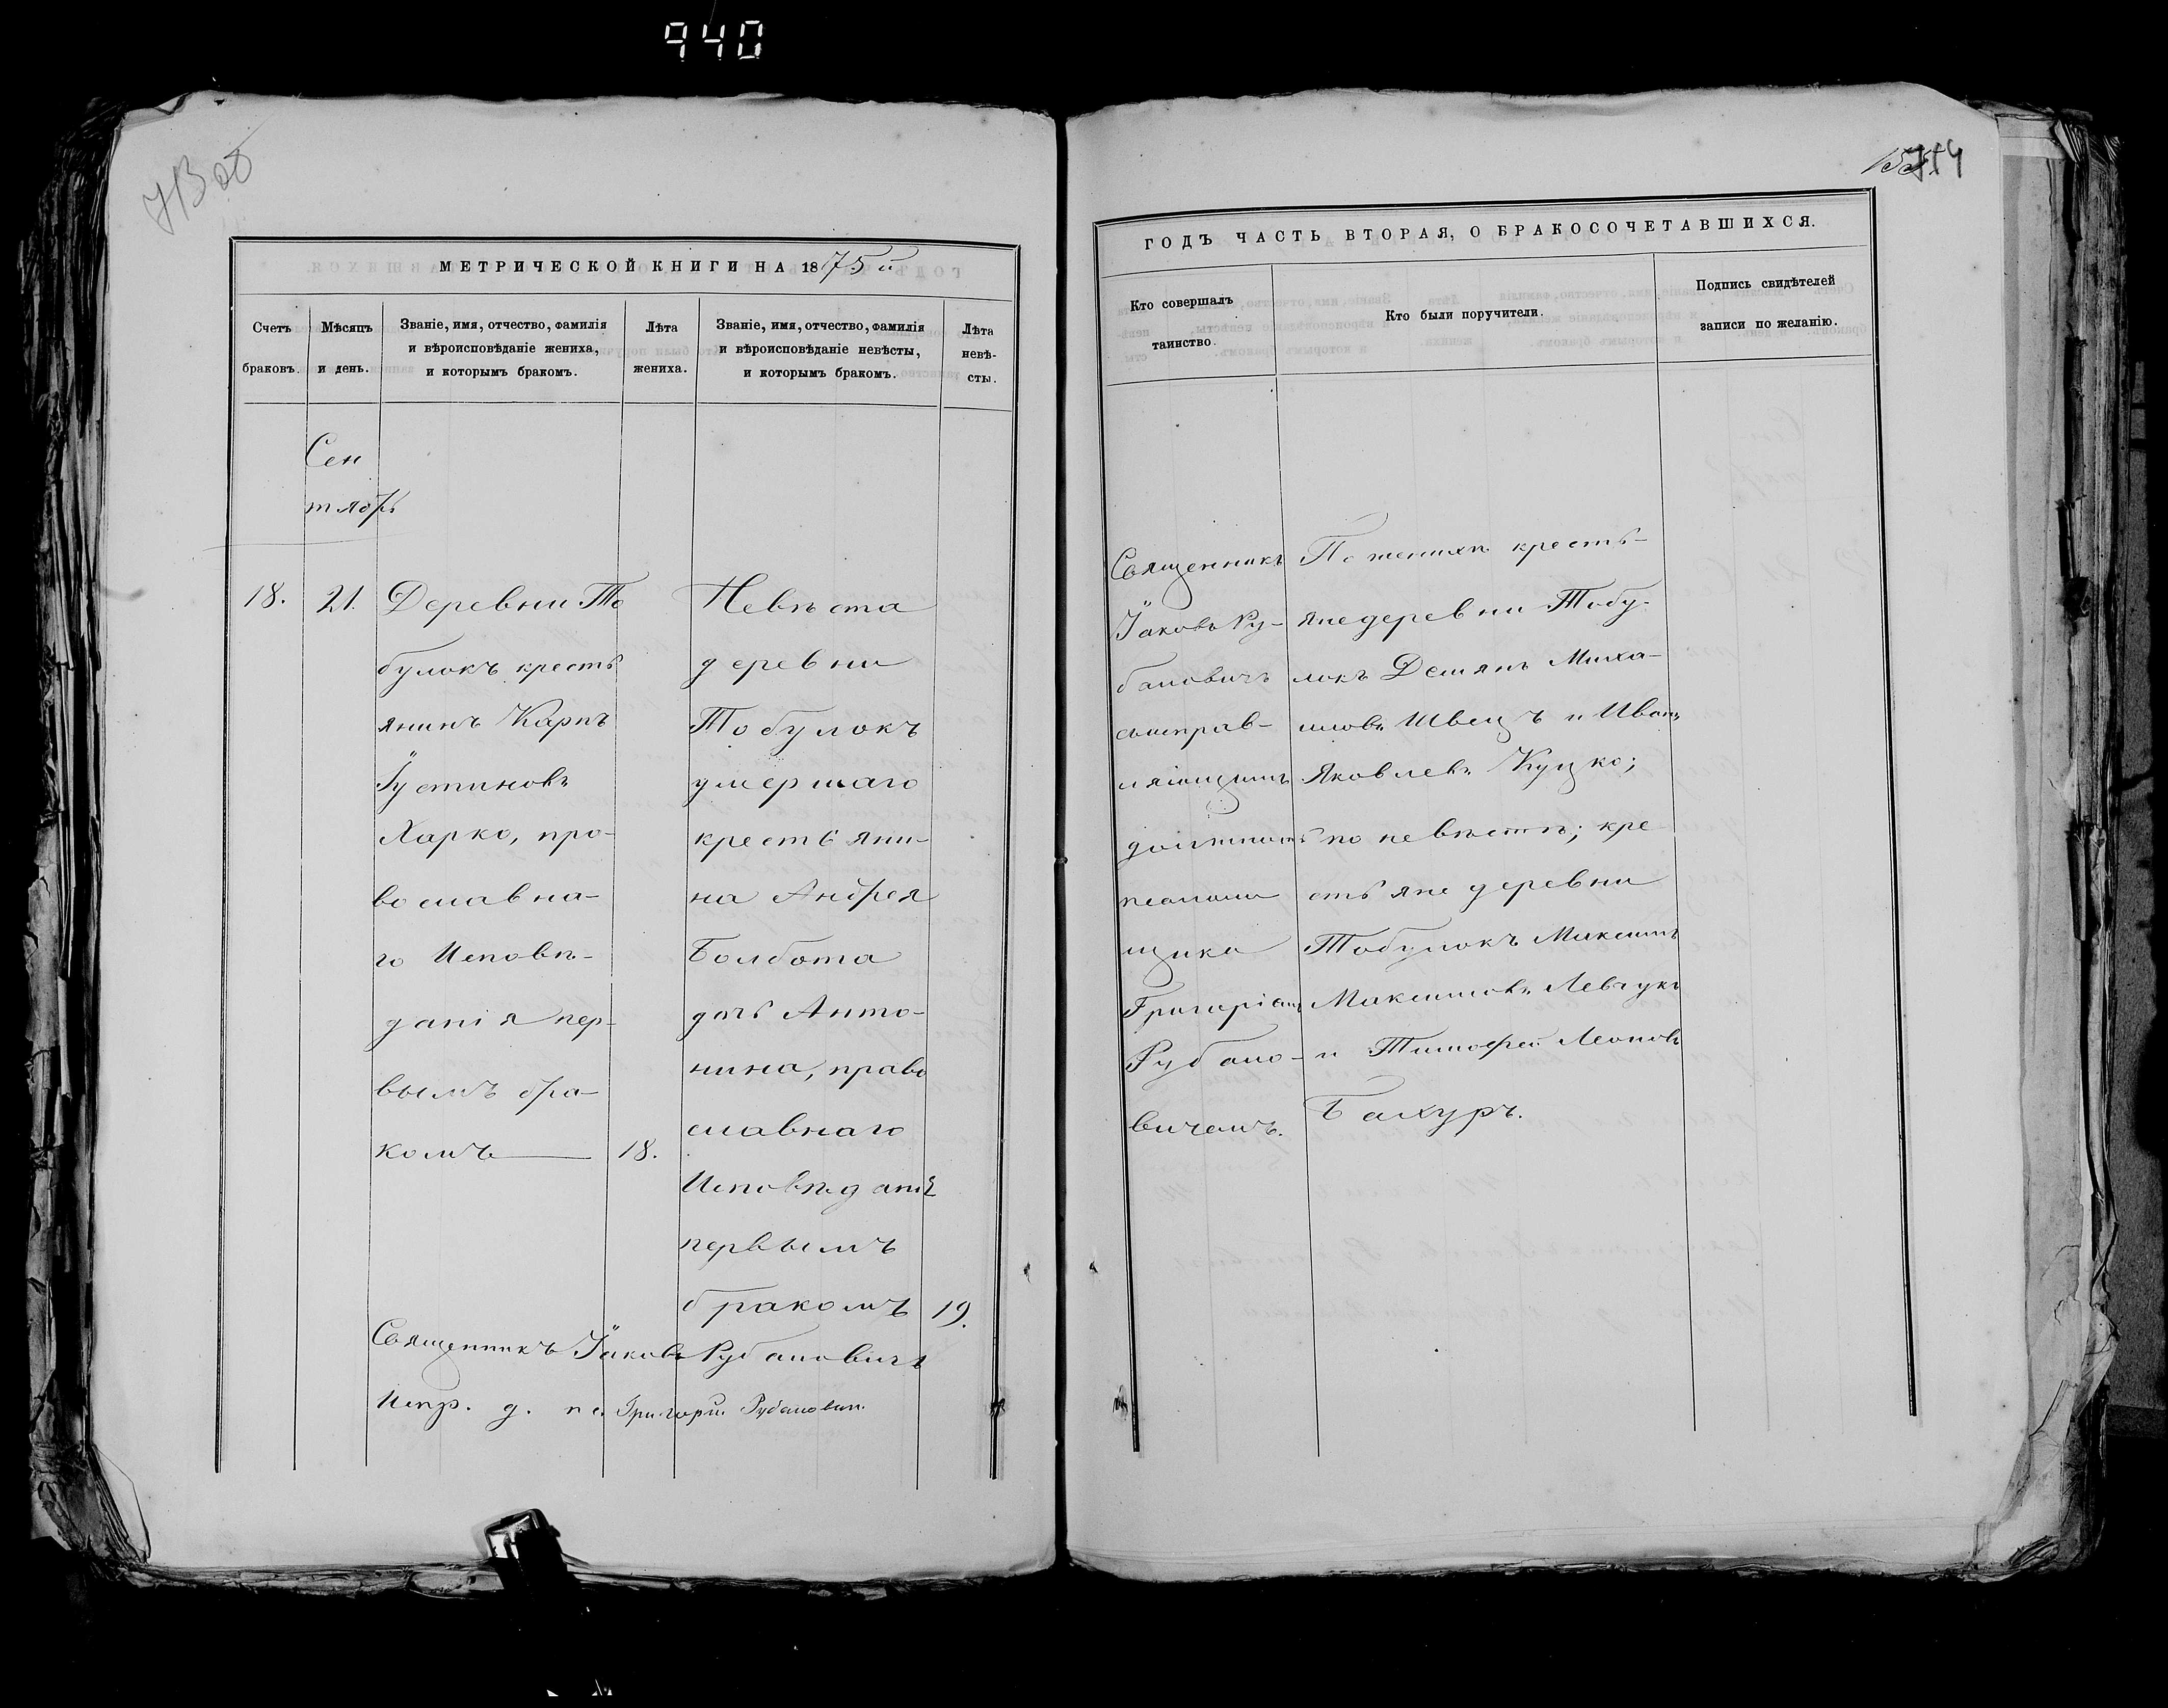 940
713 об
714
МЕТРИЧЕСКОЙ КНИГИ НА 1875 й
Счетъ браковъ.
Мѣсяцъ и день.
Званіе, имя, отчество, фамилія
и вѣроисповѣданіе жениха,
и которымъ бракомъ.
Лѣта
жениха.
Званіе, имя, отчество, фамилія
и вѣроисповѣданіе невѣсты,
и которымъ бракомъ.
Лѣта
невѣ-
сты.
Сен
тябрь
18.
21.
Деревни То
булокъ кресть
янинъ Карпъ
Іустиновъ
Харко, про-
вославна-
го Исповѣ-
данія пер-
вымъ бра-
комъ
18.
Невѣста
деревни
Тобулокъ
умершаго
крестьяни-
на Андрея
Болбота
дочь Анто-
нина, право
славнаго
Исповѣданія
первымъ
бракомъ
19.
Священникъ Іаковъ Рубановичъ
Испр. д. пс. Григорій Рубанович.
ГОДЪ ЧАСТЬ ВТОРАЯ, О БРАКОСОЧЕТАВШИХСЯ.
Кто совершалъ
таинство.
Кто были поручители.
Подпись свидѣтелей
записи по желанію.
Священникъ
Іаковъ Ру-
бановичъ
съисправ-
ляющимъ
должность
псаломи
щика
Григоріемъ
Рубано-
вичемъ.
По женихѣ кресть-
яне деревни Тобу-
локъ Демянъ Миха-
иловъ Швецъ и Иванъ
Яковлевъ Куцко;
по невѣстѣ; кре
стьяне деревни
Тобулокъ Максимъ
Максимовъ Левчукъ
и Тимофей Леоновъ
Бахуръ.